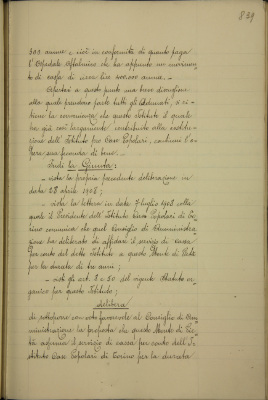 839
300 annue e ciò in conformità di quanto paga
l'Ospedale Oftalmico che ha appunto un movimen-
to di cassa di circa lire              annue. -
Apertasi a questo punto una breve discussione
alla quale prendono parte tutti gli adunati, e ri-
                che questo Istituto il quale
ha già così largamente contribuito alla
zione dell'Istituto per Case Popolari, continui l'o-
pera sua feconda di bene. -
Indi la Giunta:
- vista la propria precedente deliberazione in
data 28 aprile 1908;
- vista la lettera in data 7 luglio 1908 colla
quale il Presidente dell'Istituto Case Popolari di To-
rino comunica che quel Consiglio di Amministra-
zione ha deliberato di affidare il servizio di cassa
per conto del detto Istituto a questo Monte di Pietà
per la durata di tre anni;
- visti gli art. 8 e 50 del vigente Statuto or-
ganico per questo Istituto;
delibera
di sottoporre con voto favorevole al Consiglio di Am-
ministrazione la proposta che questo Monte di Pie-
tà assuma il servizio di cassa per conto dell'I-
stituto Case Popolari di Torino per la durata